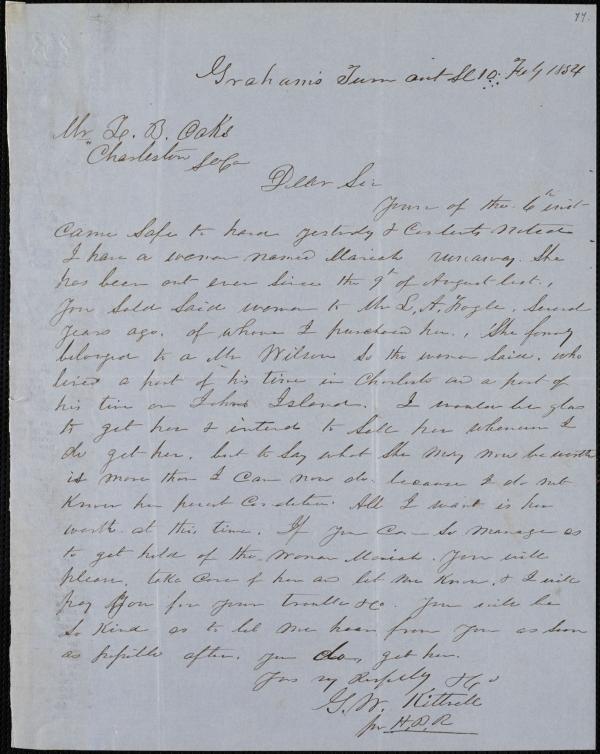 77.
Grahams Turn out SC 10. Feby 1854
Mr Z. B. Oaks
Charleston So Ca
Dear Sir
Yours of the 6th inst
Came Safe to hand yestrdy & Contents Noticed
I have a woman named Mariah runaway. She
has been out ever Since the 9th of August last.,
You Sold Said woman to Mr L, A, Fogle. Several
years ago. of whom I purchased her., She formly
belonged to a Mr Wilson So the woman Said. who
lived a part of his time in Charleston and a part of
his time on Johns Island. I would be glad
to get her & intend to Sell her whenever I
do get her. but to Say what She May now be worth
is more than I Can now do. because I do not
Know her present Condition All I want is her
worth at this time. If you Can So manage as
to get hold of the Woman Mariah. You will
please, take Care of her and let me Know, & I will
pay you for your trouble &c. You will be
So Kind as to let me hear from you as Soon
as possible after. you do, get her.
Yours vy Respectfully &c
G. W. Kittrell
pr H. D. R